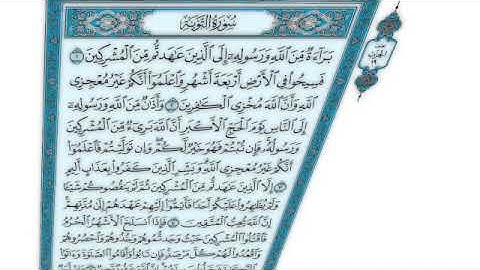 سُورَةُ التَّوْبَةِ
بَرَآءَةٌ مِّنَ ٱللَّهِ وَرَسُولِهِۦٓ إِلَى ٱلَّذِينَ عَٰهَدتُّم مِّنَ ٱلْمُشْرِكِينَ ١
فَسِيحُوا۟ فِى ٱلْأَرْضِ أَرْبَعَةَ أَشْهُرٍ وَٱعْلَمُوٓا۟ أَنَّكُمْ غَيْرُ مُعْجِزِى
ٱللَّهِ وَأَنَّ ٱللَّهَ مُخْزِى ٱلْكَٰفِرِينَ ٢ وَأَذَٰنٌ مِّنَ ٱللَّهِ وَرَسُولِهِۦٓ
إِلَى ٱلنَّاسِ يَوْمَ ٱلْحَجِّ ٱلْأَكْبَرِ أَنَّ ٱللَّهَ بَرِىٓءٌ مِّنَ ٱلْمُشْرِكِينَ
وَرَسُولُهُۥ فَإِن تُبْتُمْ فَهُوَ خَيْرٌ لَّكُمْ وَإِن تَوَلَّيْتُمْ فَٱعْلَمُوٓا۟
أَنَّكُمْ غَيْرُ مُعْجِزِى ٱللَّهِ وَبَشِّرِ ٱلَّذِينَ كَفَرُوا۟ بِعَذَابٍ أَلِيمٍ
٣ إِلَّا ٱلَّذِينَ عَٰهَدتُّم مِّنَ ٱلْمُشْرِكِينَ ثُمَّ لَمْ يَنقُصُوكُمْ شَيْـًٔا
وَلَمْ يُظَٰهِرُوا۟ عَلَيْكُمْ أَحَدًا فَأَتِمُّوٓا۟ إِلَيْهِمْ عَهْدَهُمْ إِلَىٰ مُدَّتِهِمْ
إِنَّ ٱللَّهَ يُحِبُّ ٱلْمُتَّقِينَ ٤ فَإِذَا ٱنسَلَخَ ٱلْأَشْهُرُ ٱلْحُرُمُ
فَٱقْتُلُوا۟ ٱلْمُشْرِكِينَ حَيْثُ وَجَدتُّمُوهُمْ وَخُذُوهُمْ وَٱحْصُرُوهُمْ
وَٱقْعُدُوا۟ لَهُمْ كُلَّ مَرْصَدٍ فَإِن تَابُوا۟ وَأَقَامُوا۟ ٱلصَّلَوٰةَ وَءَاتَوُا۟